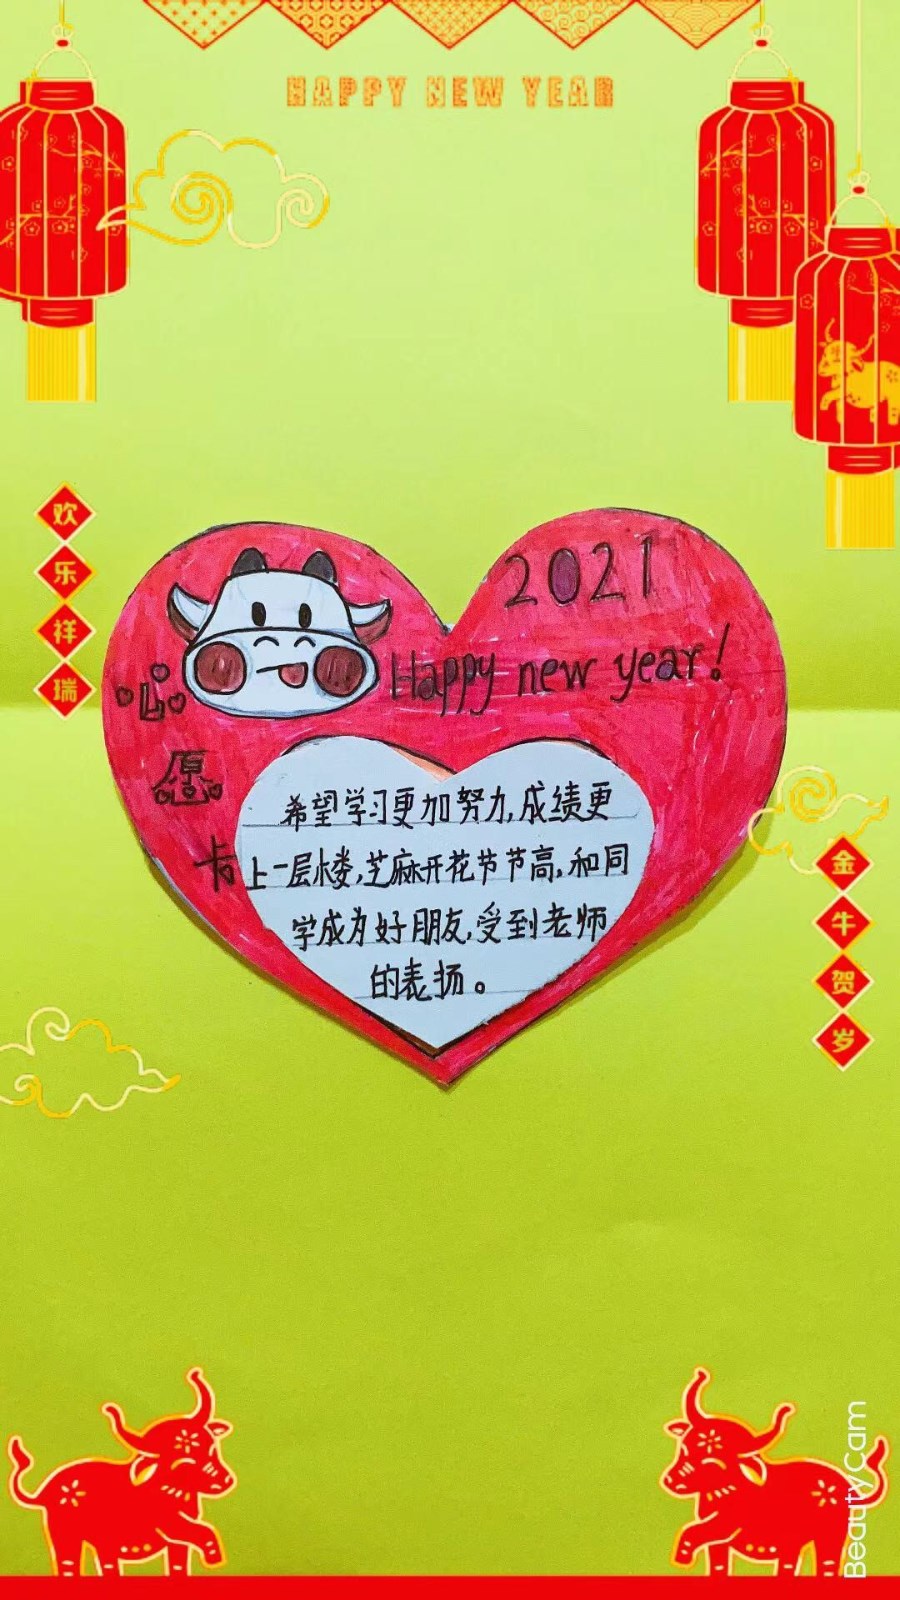 HAPPY NEW YEAR
欢乐祥瑞
2021
Happy new year!
心愿卡
希望学习更加努力,成绩更
上一层楼,芝麻开花节节高,和同
学成为好朋友,受到老师
的表扬。
金牛贺岁
BeautyCam